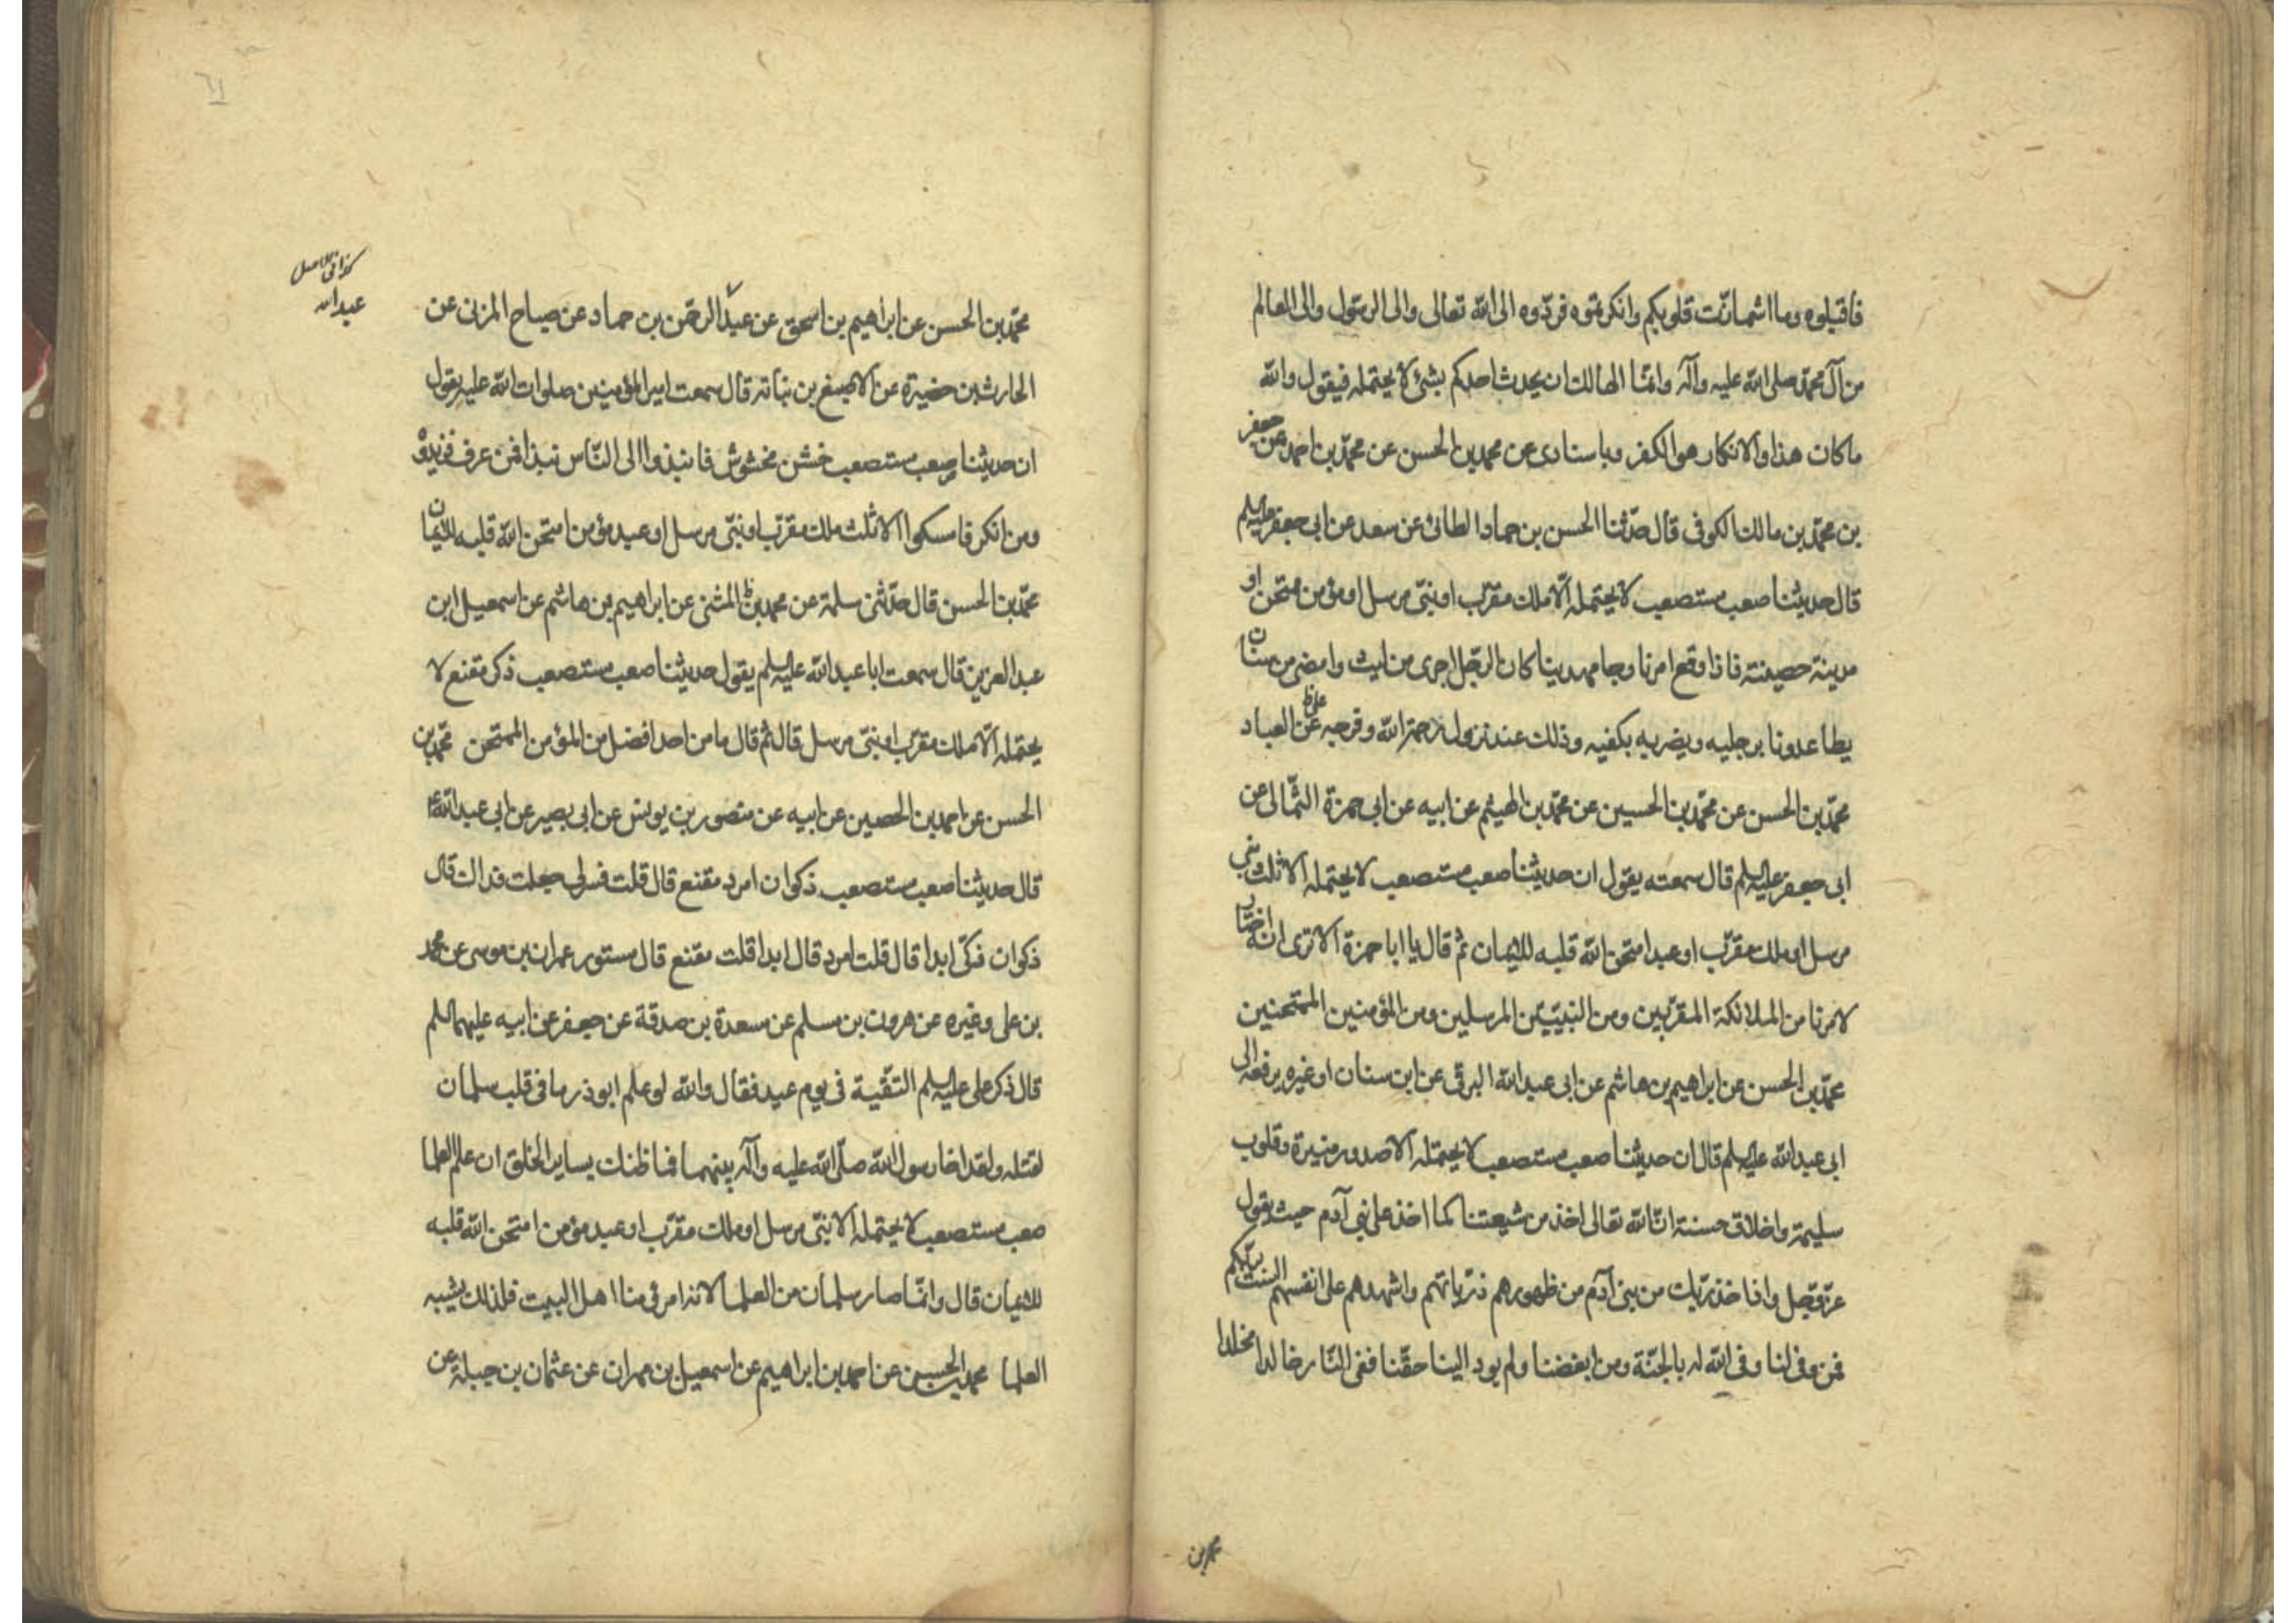 فاقبلوه وما اشمأزّت قلوبكم وانكرتموه فردّوه الى الله تعالى والى الرسول والى العالم
من آل محمّد صلى الله عليه وآله وانمّا الهالك ان يحدث احدكم بشئ لا يحتمله فيقول والله
ما كان هذا والانكار هو الكفر وباسنادى عن محمد بن الحسن عن محمّد بن احمد عن جعفر
بن محمّد بن مالك الكوفى قال حدّثنا الحسن بن حماد الطائى عن سعد عن ابى جعفر عليه السلم
قال حديثنا صعب مستصعب لا يحتمله الّا ملك مقرّب او نبىّ مرسل او مؤمن ممتحن او
مدينة حصينة فاذا وقع امرنا وجا مهدينا كان الرجل اجرى من ليث وامضى من سنان
يطا عدونا برجليه ويضربه بكفيه وذلك عند نزول رحمة الله وفرجه عن العباد
على ظ
محمّد بن الحسن عن محمّد بن الحسين عن محمّد بن الهيثم عن ابيه عن ابى حمزة الثمّالى عن
ابى جعفر عليه السلم قال سمعته يقول ان حديثنا صعب مستصعب لا يحتمله الا ثلث نبى
مرسل او ملك مقرّب او عبد امتحن الله قلبه للايمان ثم قال يا ابا حمزة الا ترى انه اختار
لامرنا من الملائكة المقرّبين ومن النبيّين المرسلين ومن المؤمنين الممتحنين
محمّد بن الحسن عن ابراهيم بن هاشم عن ابى عبد الله البرقى عن ابن سنان او غيره يرفعه الى
ابى عبد الله عليه السلم قال ان حديثنا صعب مستصعب لا يحتمله الا صدور منيرة وقلوب
سليمة واخلاق حسنة انّ الله تعالى اخذ من شيعتنا كما اخذ على بنى آدم حيث يقول
عزّ وجّل واذا خذ ربّك من بنى آدم من ظهورهم ذرّياتهم واشهدهم على انفسهم الست بربّكم
فمن وفى لنا وفى الله له بالجنّة ومن ابغضنا ولم يود الينا حقّنا ففى النّار خالدا مخلدا
محمد بن
كذا فى الاصل
عبد الله
محمّد بن الحسن عن ابراهيم بن اسحق عن عبد الرحمن بن حماد عن صباح المزنى عن
الحارث بن حضيرة عن الاصبغ بن نباته قال سمعت امير المؤمنين صلوات الله عليه يقول
ان حديثنا صعب مستصعب خشن مخشوش فانبذوا الى النّاس نبذا فمن عرف فزيدوْ
ومن انكر فامسكوا الا ثلث ملك مقرّب او نبىّ مرسل او عبد مؤمن امتحن الله قلبه للايمان
محمّد بن الحسن قال حدّثنى سلمة عن محمد بن المثنى عن ابراهيم بن هاشم عن اسمعيل ابن
عبد العزيز قال سمعت ابا عبد الله عليه السلم يقول حديثنا صعب مستصعب ذكر مقنع لا
يحتمله الّا ملك مقرّب او نبىّ مرسل قال ثم قال ما من احد افضل من المؤمن الممتحن محمّد بن
الحسن عن احمد بن الحصين عن ابيه عن منصور بن يونس عن ابى بصير عن ابى عبد الله ع
قال حديثنا صعب مستصعب ذكوان امرد مقنع قال قلت فسر لى جعلت فداك قال
ذكوان ذكّى ابدا قال قلت امرد قال ابدا قلت مقنع قال مستور عمران بن موسى عن محمد
بن على وغيره عن هرون بن مسلم عن مسعدة بن صدقة عن جعفر عن ابيه عليهما السلم
قال ذكر على عليه السلم التقّية فى يوم عيد فقال والله لو علم ابوذر ما فى قلب سلمان
لقتله ولقد اخا رسول الله صلّى الله عليه وآله بينهما فما ظنك بساير الخلق ان علم العلما
صعب مستصعب لا يحتمله الا نبىّ مرسل او ملك مقرّب او عبد مؤمن امتحن الله قلبه
للايمان قال وانمّا صار سلمان من العلما لانه امرئ منا اهل البيت فلذلك يشيبه
العلما محمد بن الحسين عن احمد بن ابراهيم عن اسمعيل بن مهران عن عثمان بن جبلة عن